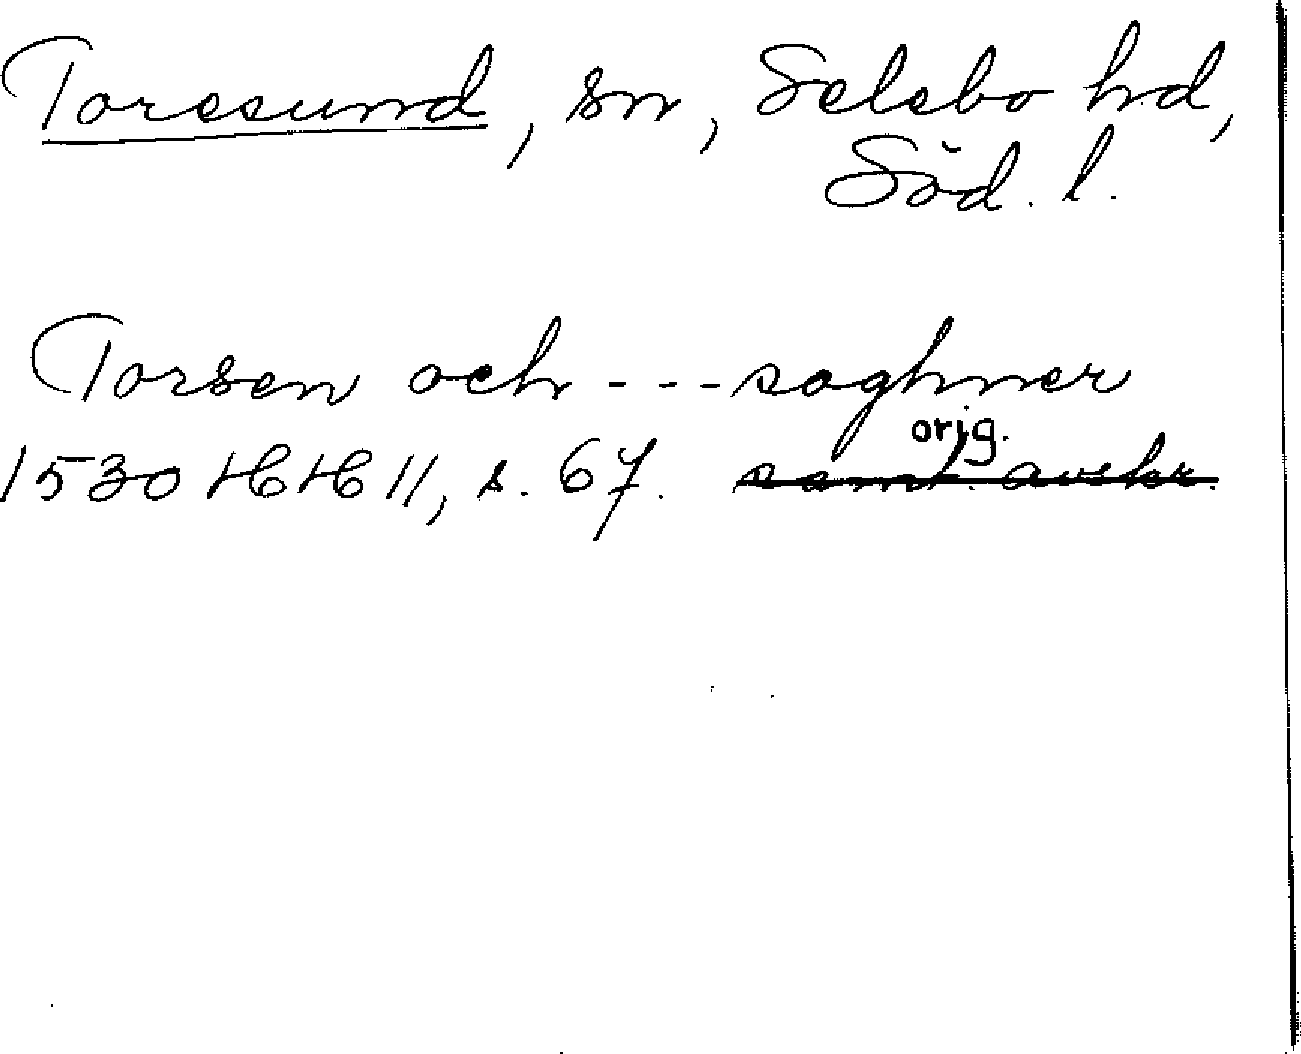 Toresund, sn, Selebo hd,
Söd. l.
Torsen och - - - soghner
orig.
1530 HH 11, s. 67. samt. avskr.